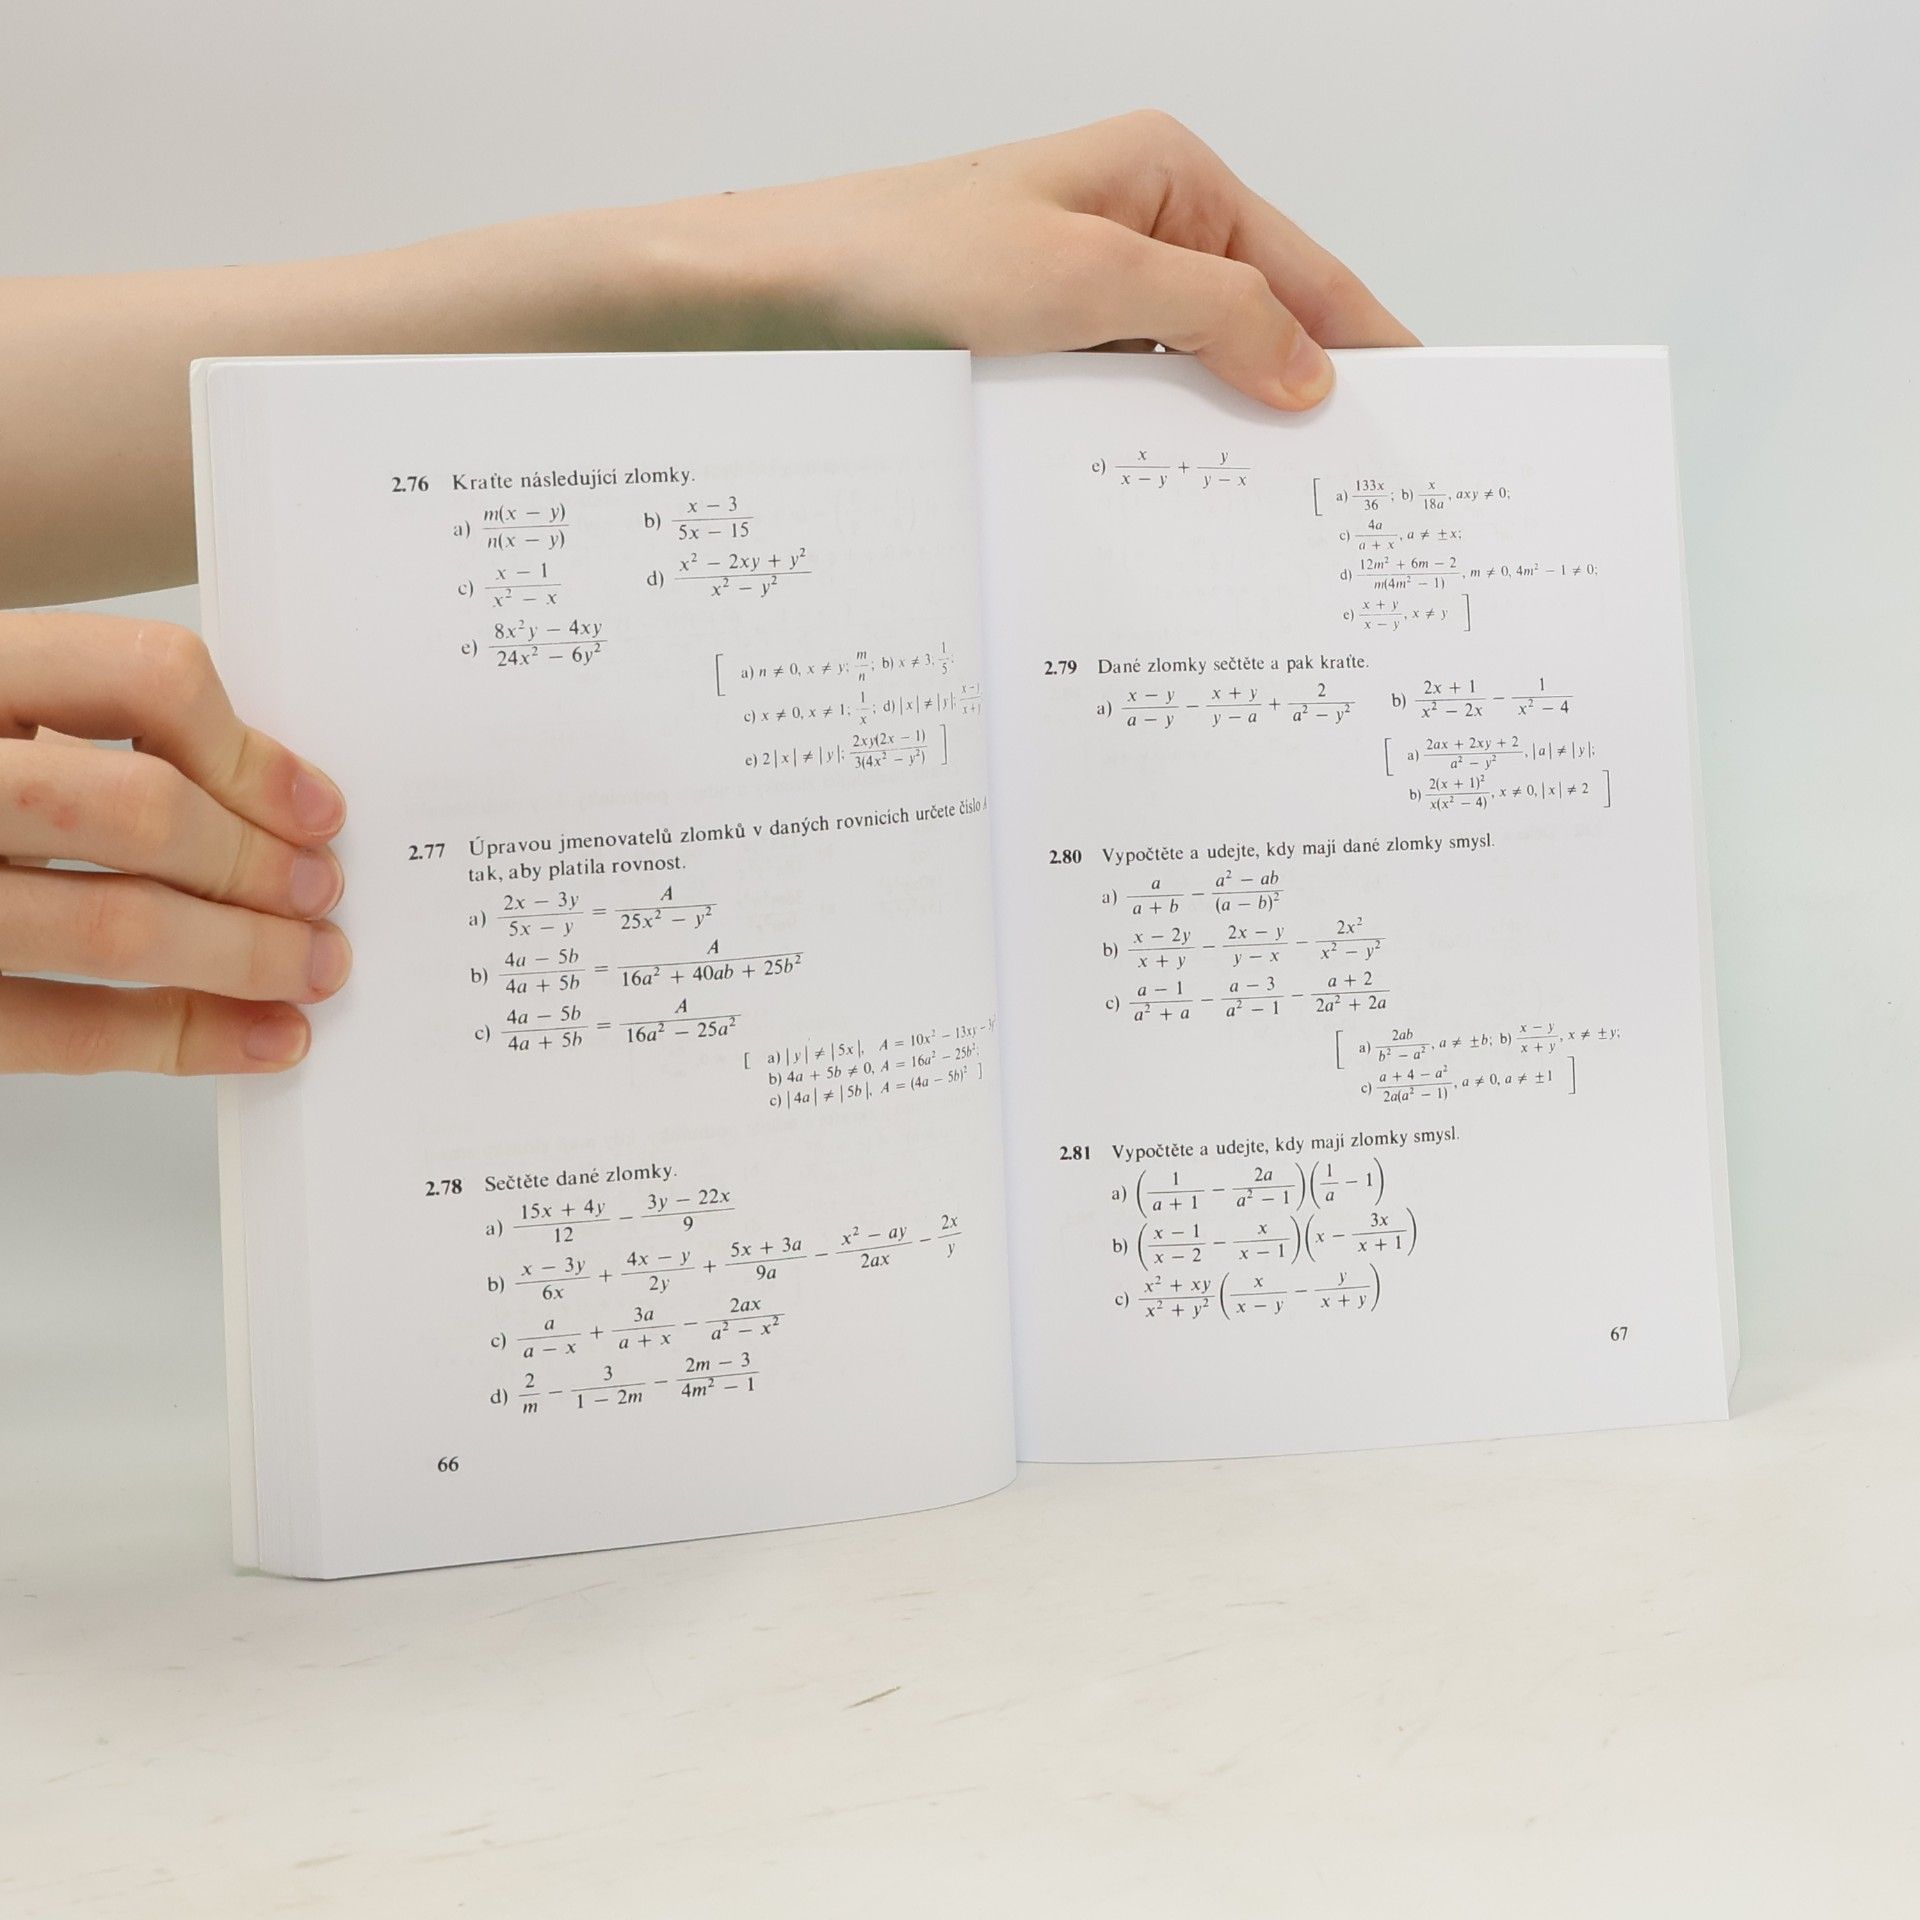 2.76 Kraťte následující zlomky.
a) m(x − y) / n(x − y) b) x − 3 / 5x − 15
c) x − 1 / x² − x d) x² − 2xy + y² / x² − y²
e) 8x²y − 4xy / 24x² − 6y²
[ a) n ≠ 0, x ≠ y; m/n; b) x ≠ 3; 1/5;
c) x ≠ 0, x ≠ 1; 1/x; d) |x| ≠ |y|;
e) 2|x| ≠ |y|; 2xy(2x − 1) / 3(4x² − y²) ]
2.77 Úpravou jmenovatelů zlomků v daných rovnicích určete číslo A
tak, aby platila rovnost.
a) 2x − 3y / 5x − y = A / 25x² − y²
b) 4a − 5b / 4a + 5b = A / 16a² + 40ab + 25b²
c) 4a − 5b / 4a + 5b = A / 16a² − 25a²
[ a) |y| ≠ |5x|, A = 10x² − 13xy −
b) 4a + 5b ≠ 0, A = 16a² − 25b²;
c) |4a| ≠ |5b|, A = (4a − 5b)² ]
2.78 Sečtěte dané zlomky.
a) 15x + 4y / 12 − 3y − 22x / 9
b) x − 3y / 6x + 4x − y / 2y + 5x + 3a / 9a − x² − ay / 2ax − 2x / y
c) a / a − x + 3a / a + x − 2ax / a² − x²
d) 2 / m − 3 / 1 − 2m − 2m − 3 / 4m² − 1
66
e) x / x − y + y / y − x
[ a) 133x / 36; b) x / 18a, axy ≠ 0;
c) 4a / a + x, a ≠ ±x;
d) 12m² + 6m − 2 / m(4m² − 1), m ≠ 0, 4m² − 1 ≠ 0;
e) x + y / x − y, x ≠ y ]
2.79 Dané zlomky sečtěte a pak kraťte.
a) x − y / a − y − x + y / y − a + 2 / a² − y² b) 2x + 1 / x² − 2x − 1 / x² − 4
[ a) 2ax + 2xy + 2 / a² − y², |a| ≠ |y|;
b) 2(x + 1)² / x(x² − 4), x ≠ 0, |x| ≠ 2 ]
2.80 Vypočtěte a udejte, kdy mají dané zlomky smysl.
a) a / a + b − a² − ab / (a − b)²
b) x − 2y / x + y − 2x − y / y − x − 2x² / x² − y²
c) a − 1 / a² + a − a − 3 / a² − 1 − a + 2 / 2a² + 2a
[ a) 2ab / b² − a², a ≠ ±b; b) x − y / x + y, x ≠ ±y;
c) a + 4 − a² / 2a(a² − 1), a ≠ 0, a ≠ ±1 ]
2.81 Vypočtěte a udejte, kdy mají zlomky smysl.
a) (1 / a + 1 − 2a / a² − 1)(1 / a − 1)
b) (x − 1 / x − 2 − x / x − 1)(x − 3x / x + 1)
c) x² + xy / x² + y² (x / x − y − y / x + y)
67